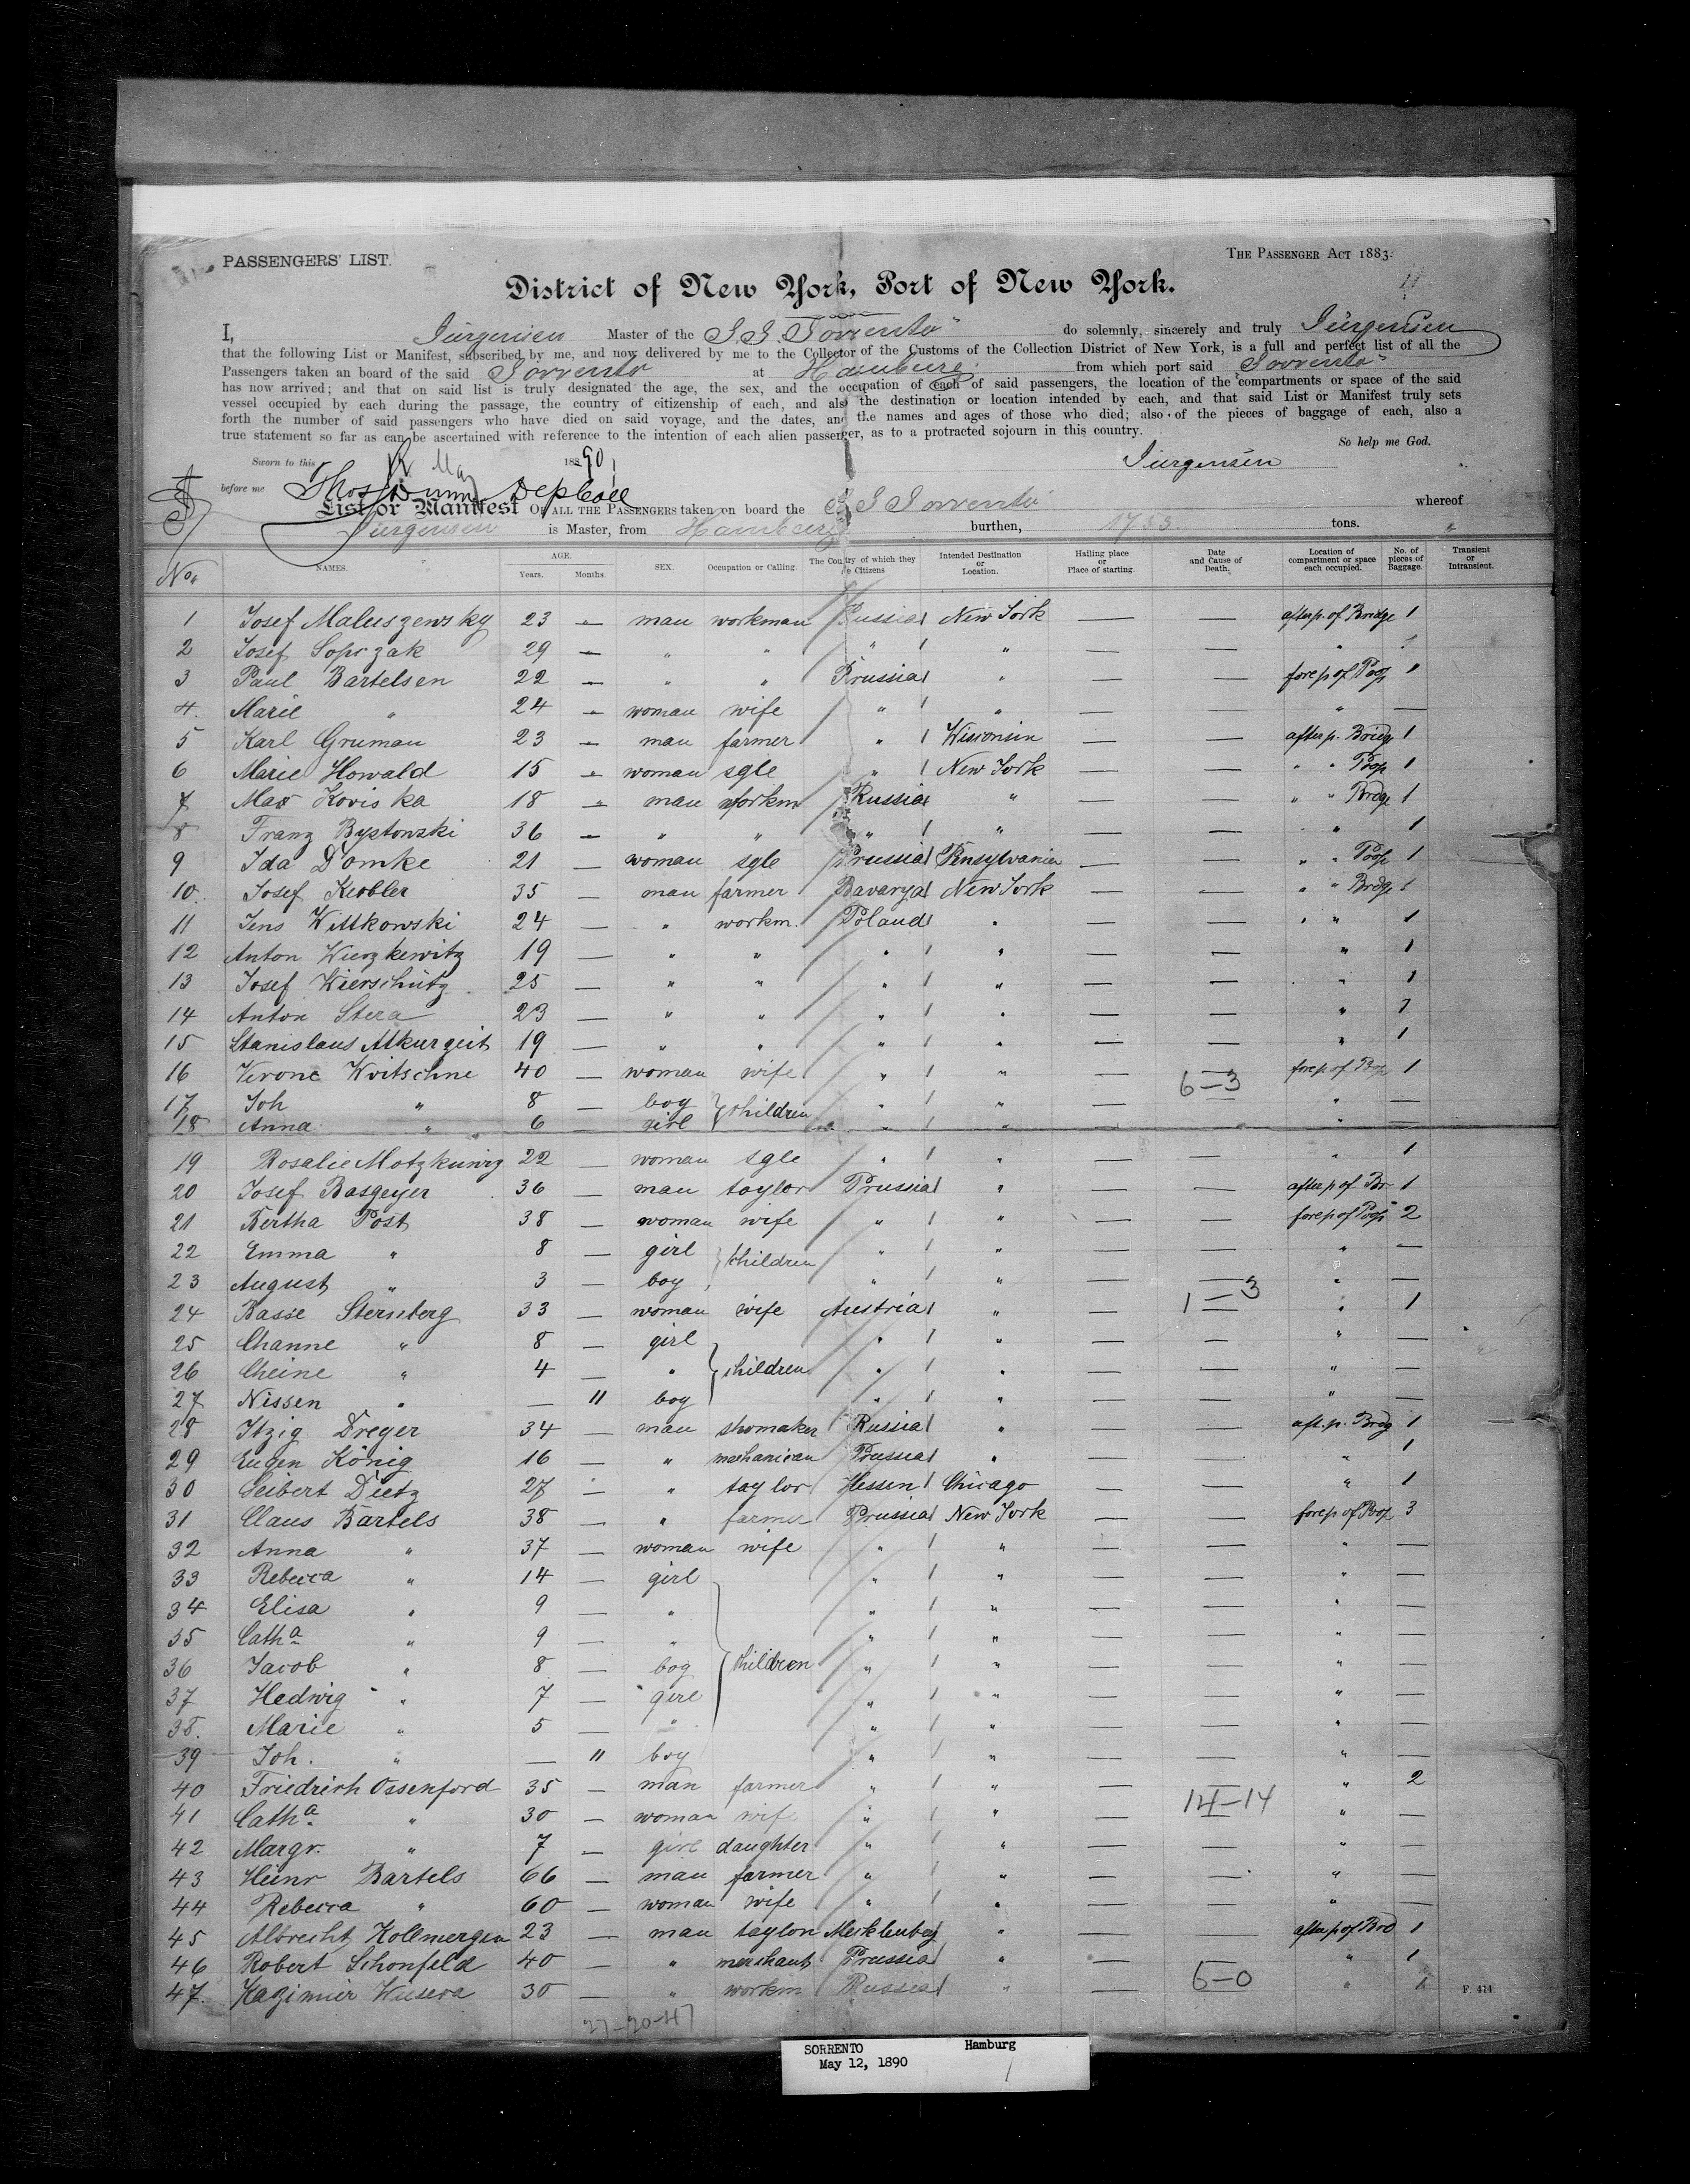 PASSENGERS' LIST.
THE PASSENGER ACT 1883.
District of New York, Port of New York.
I, Jürgensen Master of the S.S. "Sorrento" do solemnly, sincerely and truly Jürgensen
that the following List or Manifest, subscribed by me, and now delivered by me to the Collector of the Customs of the Collection District of New York, is a full and perfect list of all the
Passengers taken an board of the said Sorrento at Hamburg from which port said Sorrento
has now arrived; and that on said list is truly designated the age, the sex, and the occupation of each of said passengers, the location of the compartments or space of the said
vessel occupied by each during the passage, the country of citizenship of each, and also the destination or location intended by each, and that said List or Manifest truly sets
forth the number of said passengers who have died on said voyage, and the dates, and the names and ages of those who died; also of the pieces of baggage of each, also a
true statement so far as can be ascertained with reference to the intention of each alien passenger, as to a protracted sojourn in this country.
So help me God.
Sworn to this 12 May 1890 Jürgensen
before me Thos Dunn Dep Coll
List or Manifest OF ALL THE PASSENGERS taken on board the S S Sorrento whereof
Jürgensen is Master, from Hamburg burthen, 1753 tons.
No. NAMES. AGE. Years. Months. SEX. Occupation or Calling. The Country of which they are Citizens Intended Destination or Location. Hailing place or Place of starting. Date and Cause of Death. Location of compartment or space each occupied. No. of pieces of Baggage. Transient or Intransient.
1 Josef Maluszewsky 23 — man workman Russia New York — — afterp. of Bridge 1
2 Josef Soprzak 29 — " " " " — — "
3 Paul Bartelsen 22 — " " Prussia " — — forep of Poop 1
4. Marie " 24 — woman wife " " — — " —
5 Karl Gruman 23 — man farmer " Wisconsin — — afterp. Bridge 1
6 Marie Howald 15 — woman sgle " New York — — " " Poop 1
7 Max Koviska 18 " man workm Russia " — — " " Brdge 1
8 Franz Bystonski 36 — " " " " — — " 1
9 Ida Domke 21 — woman sgle Prussia Pensylvania — — " " Poop 1
10. Josef Keobler 35 — man farmer Bavarya New York — — " " Brdge 1
11 Jens Wittkowski 24 — " workm. Poland " — — " " 1
12 Anton Wierzkewitz 19 — " " " " — — " 1
13 Josef Wierschütz 25 — " " " " — — " 1
14 Anton Stera 23 — " " " " — — " 1
15 Stanislaus Atkurzeit 19 — " " " " — — " 1
16 Verone Woitschne 40 — woman wife " " — — forep of Poop 1
6—3
17 Joh " 8 — boy } children " " — — " —
18 Anna " 6 — girl " " — — " —
19 Rosalie Motzkuwiz 22 — woman sgle " " — — " 1
20 Josef Basgeyer 36 — man taylor Prussia " — — afterp of Br 1
21 Bertha Post 38 — woman wife " " — — forep of Poop 2
22 Emma " 8 — girl } children " " — — " —
23 August " 3 — boy " " — — " —
1—3
24 Basse Sternberg 33 — woman wife Austria " — — " 1
25 Channe " 8 — girl " " — — " —
26 Cheine " 4 — " } children " " — — " —
27 Nissen " — 11 boy " " — — " —
28 Itzig Dreyer 34 — man shomaker Russia " — — aft. p. Brdg 1
29 Eugen König 16 — " mechanican Prussia " — — " 1
30 Seibert Dietz 27 — " taylor Hessen Chicago — — " 1
31 Claus Bartels 38 — " farmer Prussia New York — — forep of Poop 3
32 Anna " 37 — woman wife " " — — " —
33 Rebecca " 14 — girl " " — — " —
34 Elisa " 9 — " " " — — " —
35 Catha " 9 — " " " — — " —
36 Jacob " 8 — boy } children " " — — " —
37 Hedwig " 7 — girl " " — — " —
38. Marie " 5 — " " " — — " —
39 Joh. " — 11 boy " " — — " —
40 Friedrich Ossenford 35 — man farmer " " — — " 2
14—14
41 Catha " 30 — woman wife " " — — " —
42 Margr. " 7 — girl daughter " " — — " —
43 Heinr Bartels 66 — man farmer " " — — " —
44 Rebecca " 60 — woman wife " " — — " —
45 Albrecht Kollmergen 23 — man taylor Mecklenbrg " — — afterp of Brd 1
46 Robert Schonfeld 40 — " merchant Prussia " — — " 1
5—0
47. Kazimier Wusera 30 — " workm Russia " — " 1
F. 414
27—20—47
SORRENTO Hamburg
May 12, 1890
1